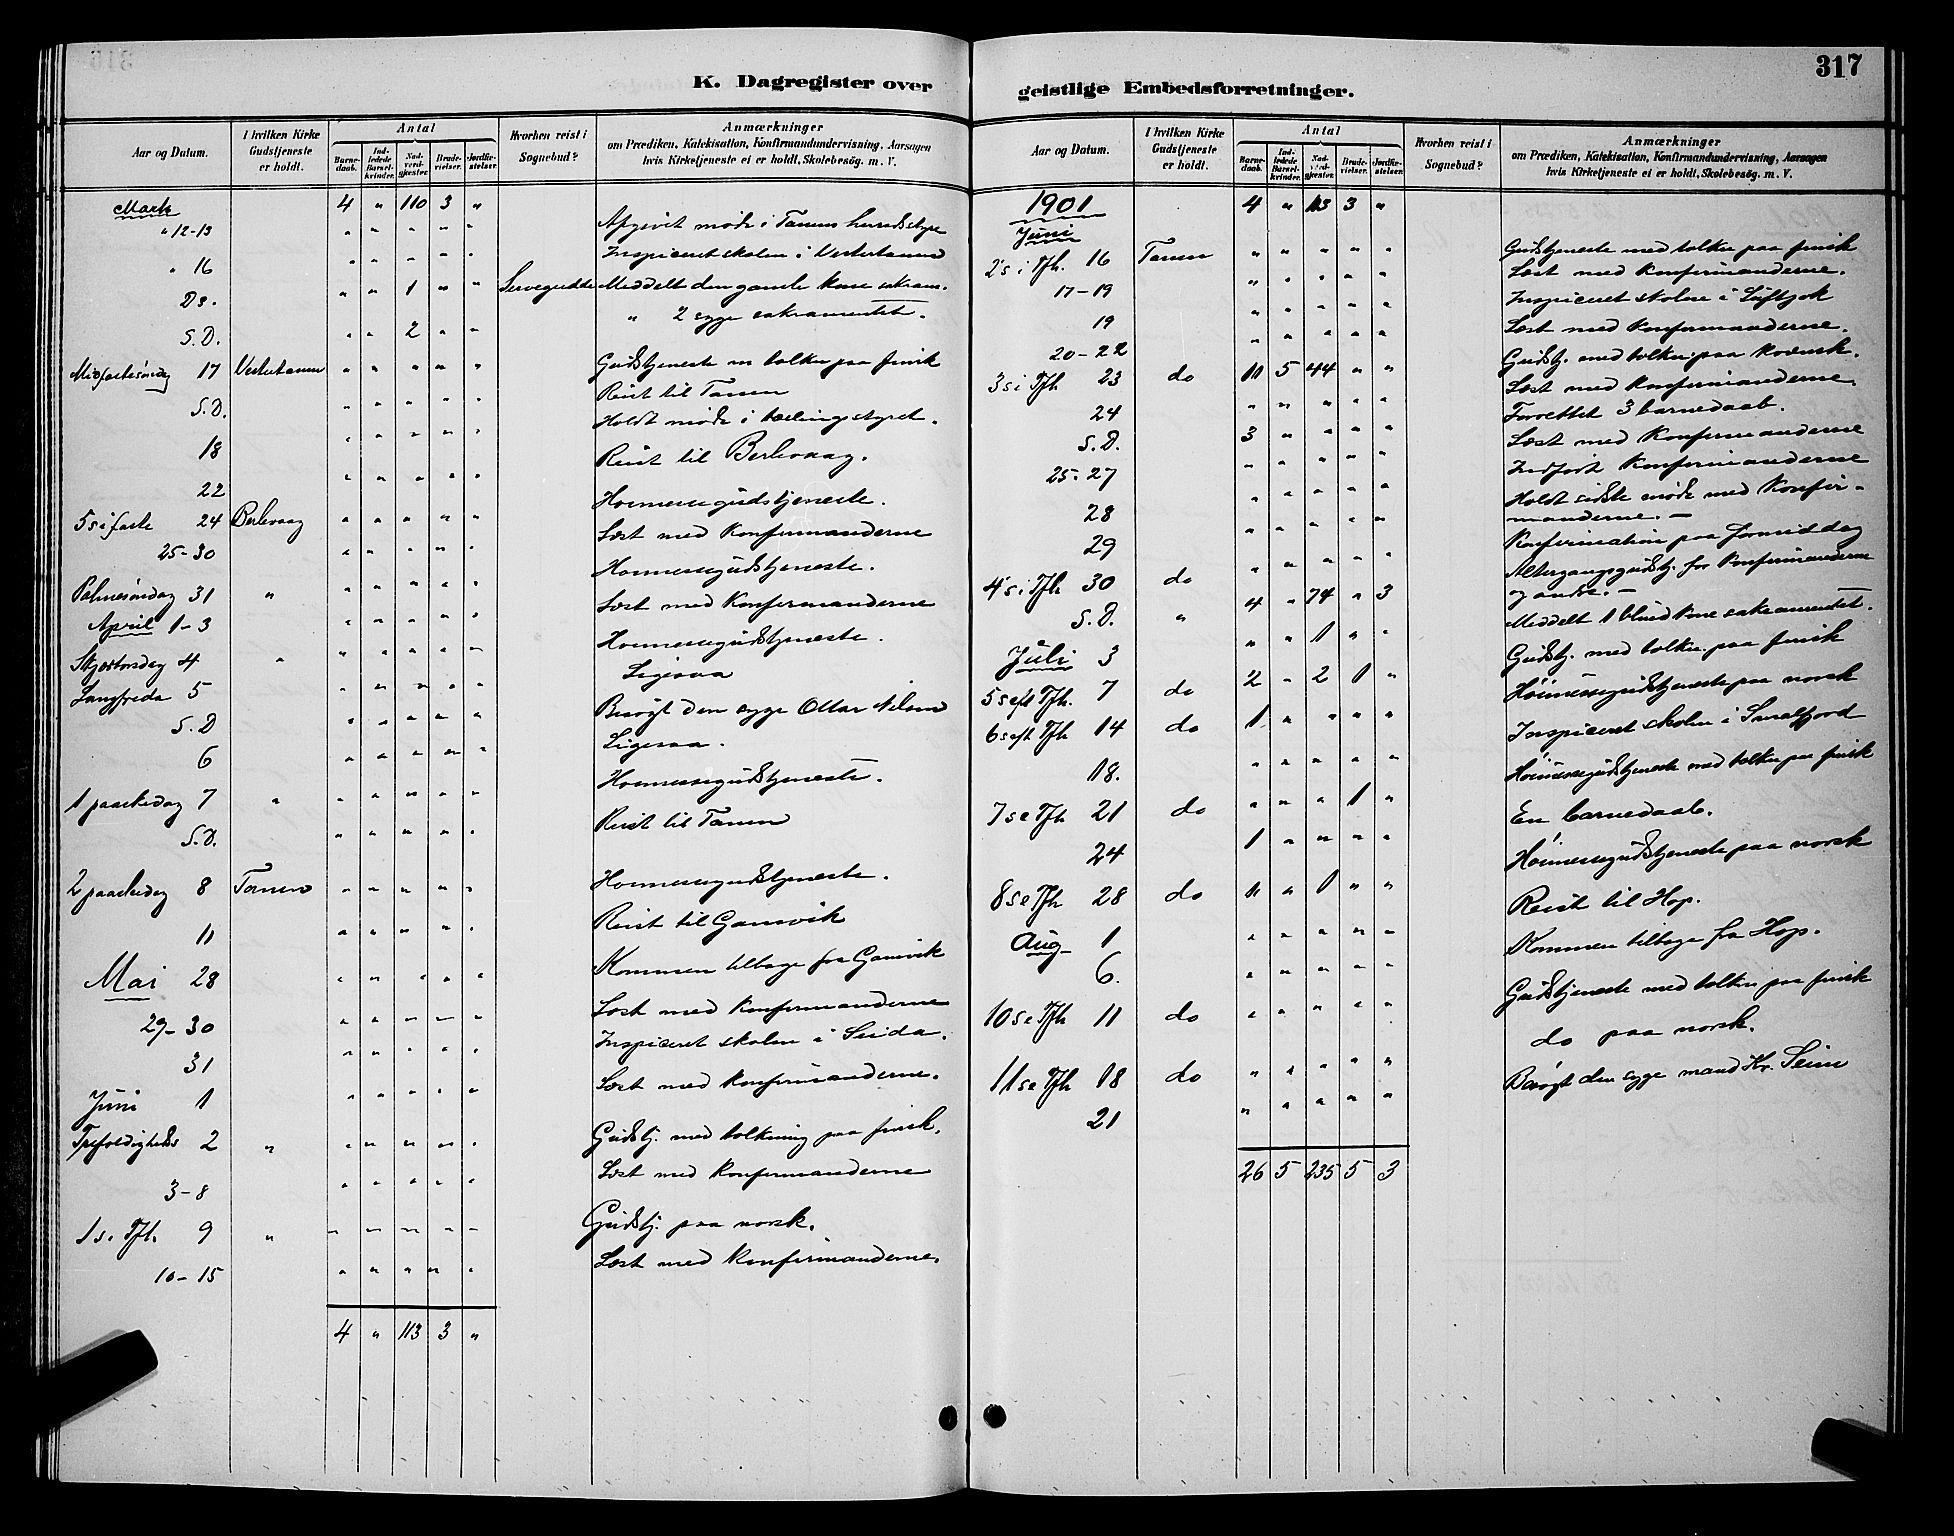 317
K. Dagregister over
Aar og Datum. I hvilken Kirke Gudstjeneste er holdt. Antal Barnedaab. Indledede Barselkvinder. Nadverdgjester. Brudevielser. Jordfæstelser. Hvorhen reist i Sognebud? Anmærkninger om Prædiken, Katekisation, Konfirmandundervisning, Aarsagen hvis Kirketjeneste ei er holdt, Skolebesøg. m. V.
Marts 4 " 110 3 "
" 12-13 " " " " " møde i Tanens herredsstyre
" 16 " " " " " Inspiceret skolen i Vestertanen
Ds. " " 1 " " Meddelt den gamle kone sakram.
S. D. " " 2 " " " 2 syge sakramentet.
Midfastesöndag 17 Vestertanen " " " " " Gudstjeneste m tolken paa finsk
S. D. " " " " " Reist til Tanen
18 " " " " " Holdt møde i styret.
22 " " " " " Reist til Berlevaag.
5 s i faste 24 Berlevaag " " " " " Hoimessegudstjeneste.
25-30 " " " " " Læst med Konfirmanderne
Palmesöndag 31 " " " " " " Hoimessegudstjeneste.
April 1-3 " " " " " Læst med Konfirmanderne
Skjærtorsdag 4 " " " " " " Hoimessegudstjeneste.
Langfreda 5 " " " " " Ligesaa
S. D " " " " " Besøgt den syge Ottar Nilsen
6 " " " " " Ligesaa.
1 paaskedag 7 " " " " " " Hoimessegudstjeneste.
S. D. " " " " " Reist til Tanen
2 paaskedag 8 Tanen " " " " " Hoimessegudstjeneste.
11 " " " " " Reist til Gamvik
Mai 28 " " " " " Kommen tilbage fra Gamvik
29-30 " " " " " Læst med Konfirmanderne
31 " " " " " Inspiceret skolen i Seida.
Juni 1 " " " " " Læst med konfirmanderne.
Trefoldigheds 2 " " " " " " Gudstj. med tolkning paa finsk.
3-8 " " " " " Læst med konfirmanderne
1 s. Tfh. 9 " " " " " " Gudstj. paa norsk.
10-15 " " " " " Læst med konfirmanderne.
4 " 113 3 "
geistlige Embedsforretninger.
Aar og Datum. I hvilken Kirke Gudstjeneste er holdt. Antal Barnedaab. Indledede Barselkvinder. Nadverdgjester. Brudevielser. Jordfæstelser. Hvorhen reist i Sognebud? Anmærkninger om Prædiken, Katekisation, Konfirmandundervisning, Aarsagen hvis Kirketjeneste ei er holdt, Skolebesøg. m. V.
1901 4 " 113 3 "
Juni
2's i Tfh. 16 Tanen " " " " " Gudstjeneste med tolken paa finsk
17-19 " " " " " Læst med konfirmanderne.
19 " " " " " Inspiceret skolen i Luftjok
20-22 " " " " " Læst med konfirmanderne.
3 s i Tfh 23 do 11 5 44 " " Gudstj. med tolken paa kvænsk.
24 " " " " " Læst med konfirmanderne.
S. D. 3 " " " " Forrettet 3 barnedaab.
25-27 " " " " " Læst med Konfirmanderne
28 " " " " " Indført Konfirmanderne
29 " " " " " Holdt sidste møde med Konfir-
manderne. —
4's i Tfh 30 do " " " " " Konfirmation paa formiddag
S. D. " 4 " 74 " 3 Altergangsgudstj. for Konfirmanderne
og andre. —
Juli 3 " " 1 " " Meddelt 1 blind kone sakramentet.
5 s eft Tfh. 7 do 2 " 2 1 " Gudstj. med tolken. paa finsk
6 s eft Tfh 14 do 1 " " " " Höimessegudstjeneste paa norsk
18. " " " " " Inspiceret skolen i Smalfjord
7 s e Tfh 21 do " " " 1 " Höimessegudstjeneste med tolken paa finsk
24 1 " " " " En barnedaab.
8 s e Tfh 28 do " " 1 " " Höimessegudstjeneste paa norsk
Aug 1 " " " " " Reist til Hop.
6. " " " " " Kommen tilbage fra Hop.
10 s e Tfh 11 do " " " " " Gudstjeneste med tolken paa finsk
11 s e Tfh 18 do " " " " " do paa norsk.
21 " " " " " Besøgt den syge mand Hr. Seim
26 5 235 5 3